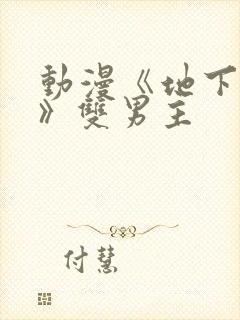 動漫《地下
》雙男主
付慧